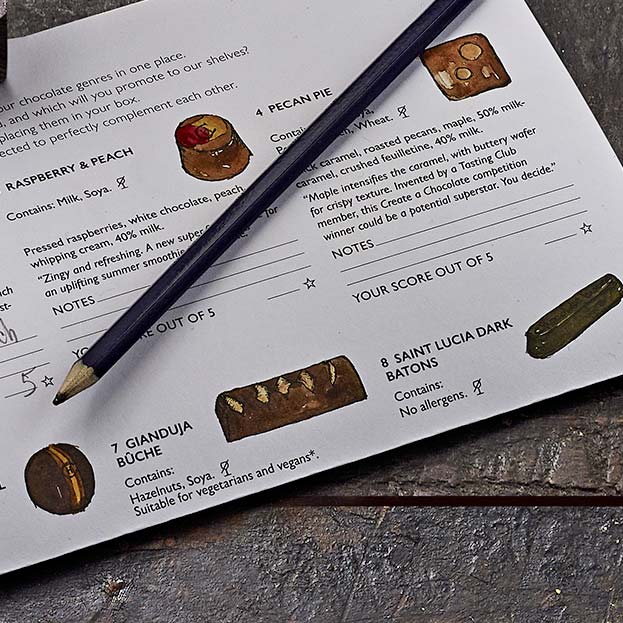 our chocolate genres in one place.
, and which will you promote to our shelves?
placing them in your box.
ected to perfectly complement each other.
RASPBERRY & PEACH
Contains: Milk, Soya.
Pressed raspberries, white chocolate, peach,
whipping cream, 40% milk.
"Zingy and refreshing. A new super for
an uplifting summer smoothie
NOTES
YO SCORE OUT OF 5
4 PECAN PIE
Conta Soya,
Pe en, Wheat.
ck caramel, roasted pecans, maple, 50% milk-
caramel, crushed feuilletine, 40% milk.
"Maple intensifies the caramel, with buttery wafer
for crispy texture. Invented by a Tasting Club
member, this Create a Chocolate competition
winner could be a potential superstar. You decide."
NOTES
YOUR SCORE OUT OF 5
ch
st-
5
7 GIANDUJA
BÛCHE
Contains:
Hazelnuts, Soya.
Suitable for vegetarians and vegans*.
8 SAINT LUCIA DARK
BATONS
Contains:
No allergens.